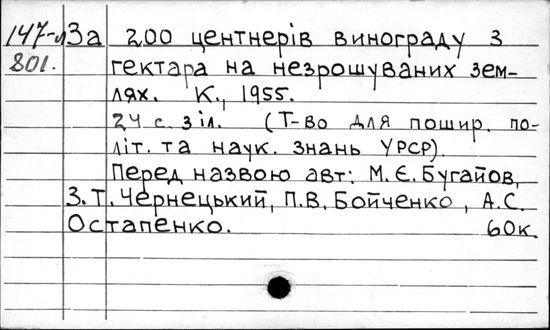 147-л За 200 центнерів винограду з
801. гектара на незрошуваних зем-
лях. К., 1955.
24 с. з іл. (Т-во для пошир. по-
літ. та наук. знань УРСР).
Перед назвою авт: М.Є. Бугайов,
З.Т. Чернецький, П.В. Бойченко, А.С.
Остапенко. 60к.